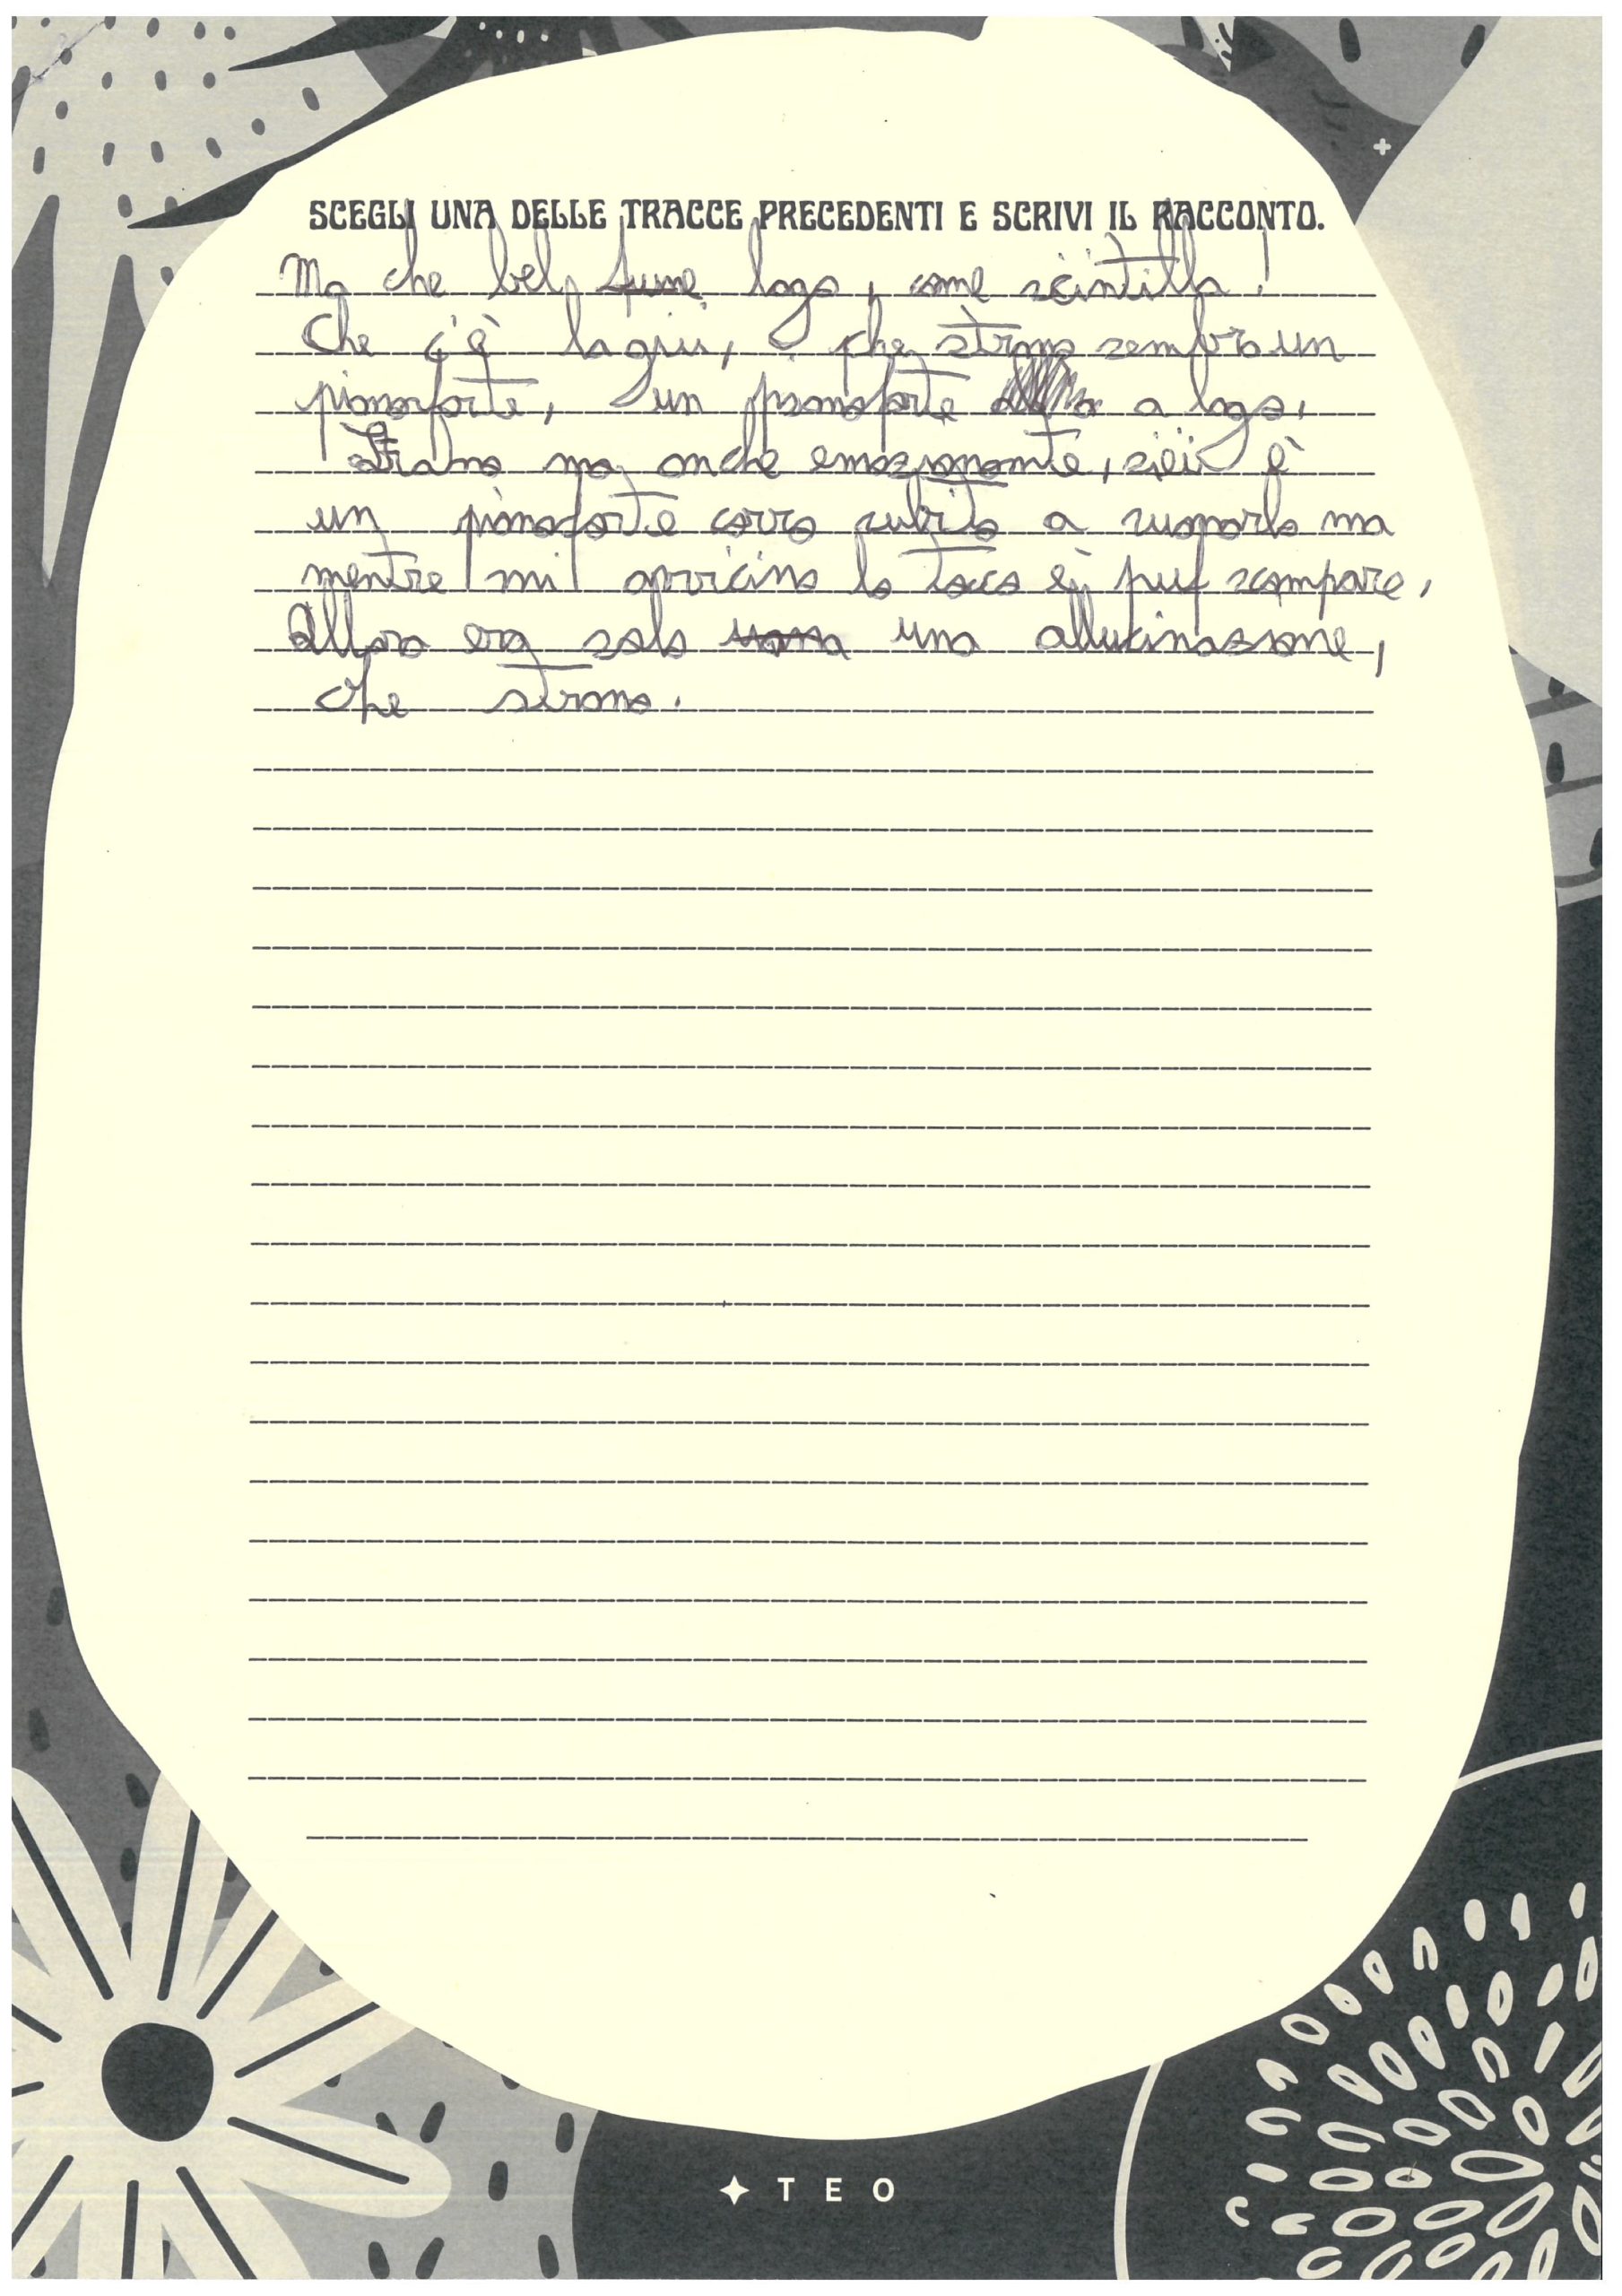 SCEGLI UNA DELLE TRACCE PRECEDENTI E SCRIVI IL RACCONTO.
Ma che bel fiume lago, come scintilla!
Che c'è lagiù, che strano sembra un
pianoforte, un pianoforte a lago.
Strano ma anche emozionante, sìììì è
un pianoforte corro subito a suonarlo ma
mentre mi avvicino lo tocco e puf scompare.
Allora era solo una allucinazione,
che strano.
TEO